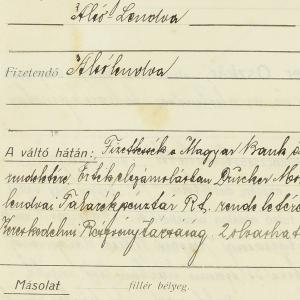 Alsó Lendva
Fizetendő Alsólendva
A váltó hátán: Fizettessék a Magyar Bank
rendeletére. Érték elszámolásban Drucker
lendvai Takarékpénztár R.t. rendeletére
Kereskedelmi Részvénytársaság 2 olvashat
Másolat fillér bélyeg.